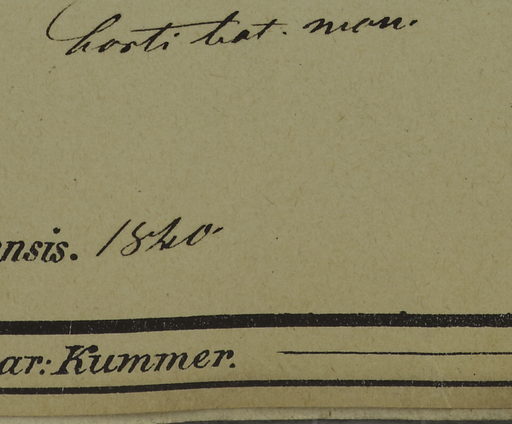 horti bot. mon.
ensis. 1840.
ar: Kummer.